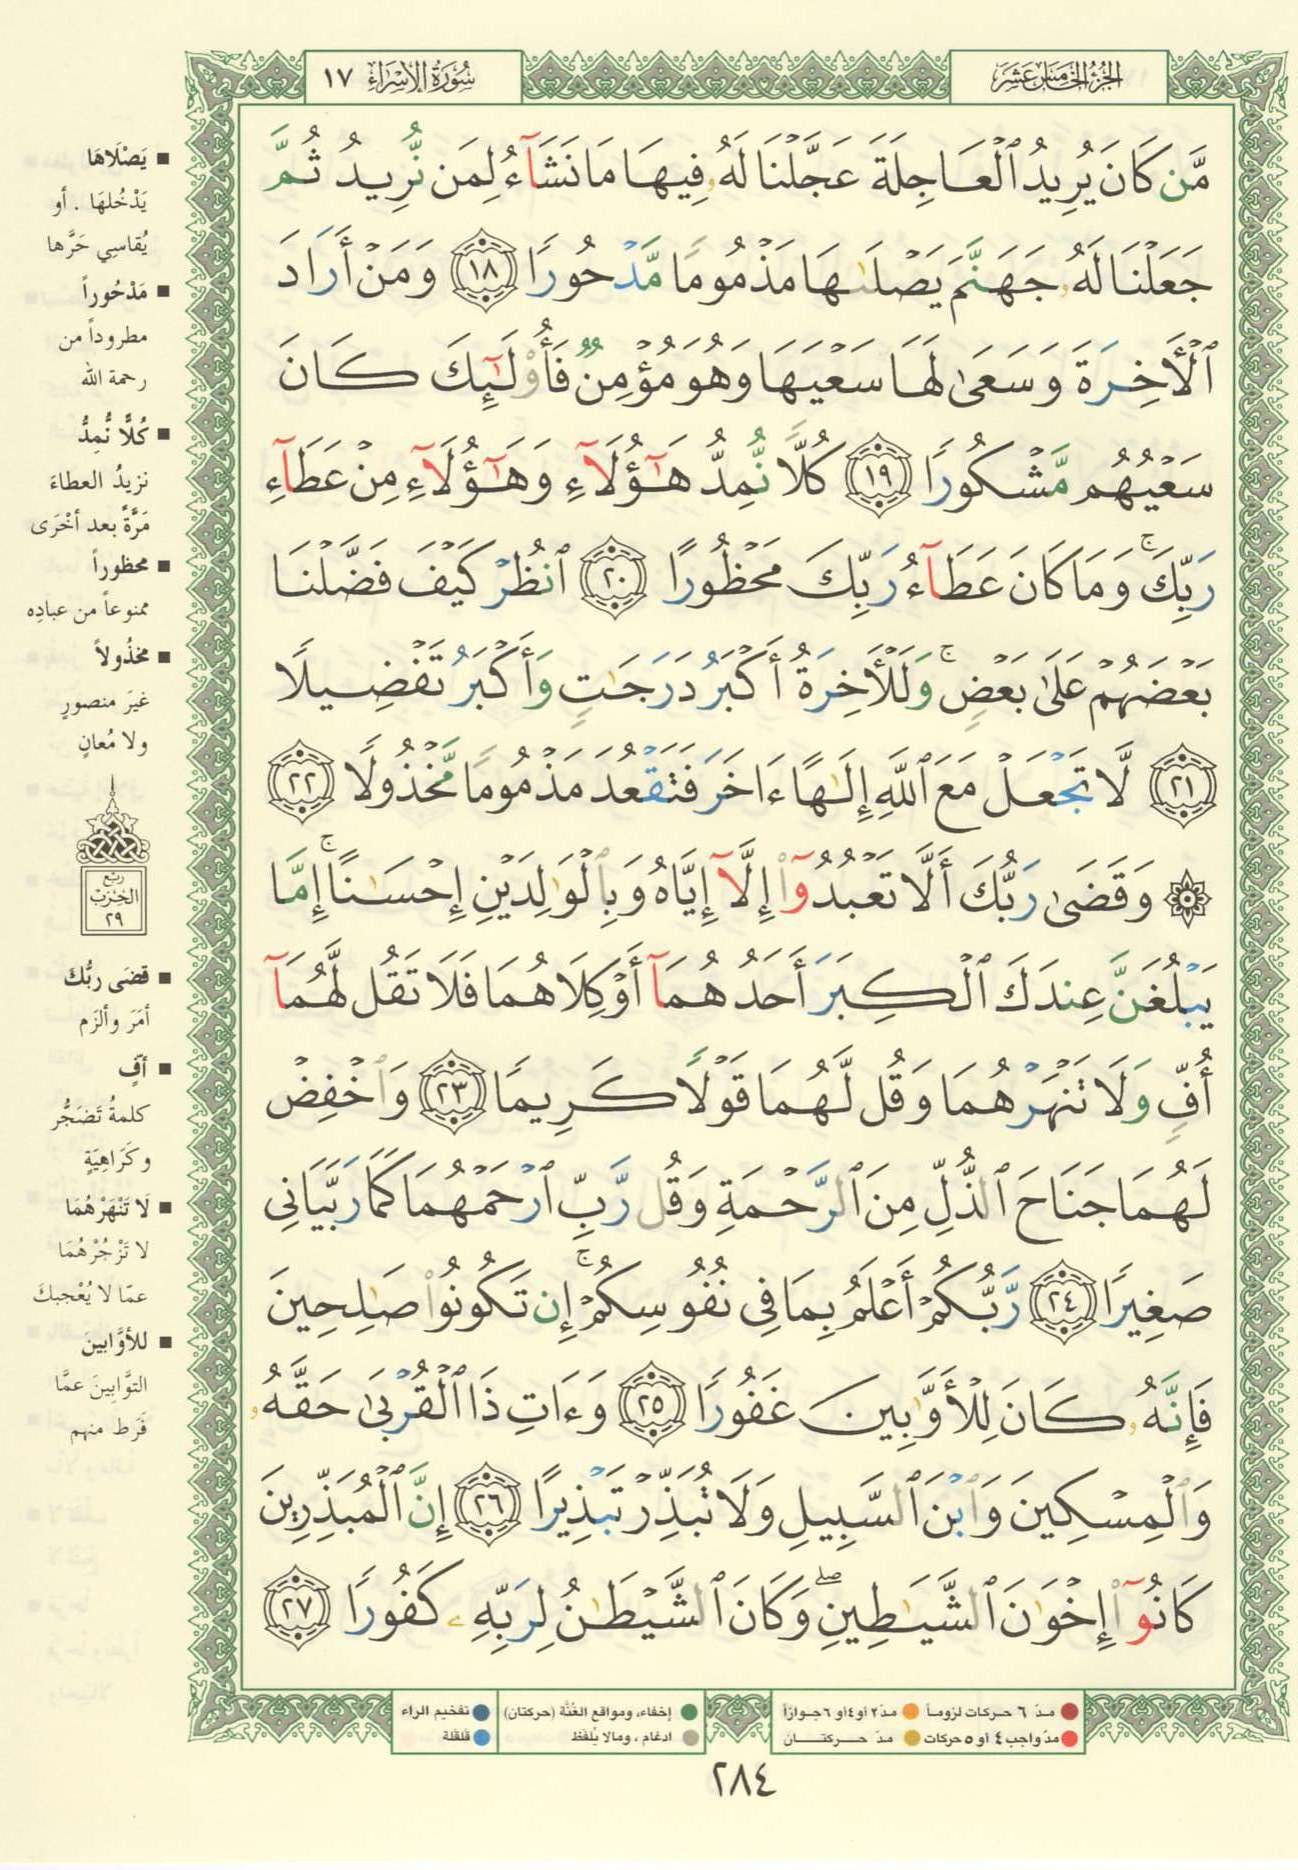 الجزء الخامس عشر
سورة الإسراء ١٧
مَّن كَانَ يُرِيدُ ٱلْعَاجِلَةَ عَجَّلْنَا لَهُۥ فِيهَا مَا نَشَآءُ لِمَن نُّرِيدُ ثُمَّ
جَعَلْنَا لَهُۥ جَهَنَّمَ يَصْلَىٰهَا مَذْمُومًا مَّدْحُورًا ١٨ وَمَنْ أَرَادَ
ٱلْأَخِرَةَ وَسَعَىٰ لَهَا سَعْيَهَا وَهُوَ مُؤْمِنٌ فَأُو۟لَٰٓئِكَ كَانَ
سَعْيُهُم مَّشْكُورًا ١٩ كُلًّا نُّمِدُّ هَٰٓؤُلَآءِ وَهَٰٓؤُلَآءِ مِنْ عَطَآءِ
رَبِّكَ ۚ وَمَا كَانَ عَطَآءُ رَبِّكَ مَحْظُورًا ٢٠ ٱنظُرْ كَيْفَ فَضَّلْنَا
بَعْضَهُمْ عَلَىٰ بَعْضٍ ۚ وَلَلْأَخِرَةُ أَكْبَرُ دَرَجَٰتٍ وَأَكْبَرُ تَفْضِيلًا
٢١ لَّا تَجْعَلْ مَعَ ٱللَّهِ إِلَٰهًا ءَاخَرَ فَتَقْعُدَ مَذْمُومًا مَّخْذُولًا ٢٢
۞ وَقَضَىٰ رَبُّكَ أَلَّا تَعْبُدُوٓا۟ إِلَّآ إِيَّاهُ وَبِٱلْوَٰلِدَيْنِ إِحْسَٰنًا ۚ إِمَّا
يَبْلُغَنَّ عِندَكَ ٱلْكِبَرَ أَحَدُهُمَآ أَوْ كِلَاهُمَا فَلَا تَقُل لَّهُمَآ
أُفٍّ وَلَا تَنْهَرْهُمَا وَقُل لَّهُمَا قَوْلًا كَرِيمًا ٢٣ وَٱخْفِضْ
لَهُمَا جَنَاحَ ٱلذُّلِّ مِنَ ٱلرَّحْمَةِ وَقُل رَّبِّ ٱرْحَمْهُمَا كَمَا رَبَّيَانِى
صَغِيرًا ٢٤ رَّبُّكُمْ أَعْلَمُ بِمَا فِى نُفُوسِكُمْ ۚ إِن تَكُونُوا۟ صَٰلِحِينَ
فَإِنَّهُۥ كَانَ لِلْأَوَّٰبِينَ غَفُورًا ٢٥ وَءَاتِ ذَا ٱلْقُرْبَىٰ حَقَّهُۥ
وَٱلْمِسْكِينَ وَٱبْنَ ٱلسَّبِيلِ وَلَا تُبَذِّرْ تَبْذِيرًا ٢٦ إِنَّ ٱلْمُبَذِّرِينَ
كَانُوٓا۟ إِخْوَٰنَ ٱلشَّيَٰطِينِ ۖ وَكَانَ ٱلشَّيْطَٰنُ لِرَبِّهِۦ كَفُورًا ٢٧
■ يَصْلَاهَا
يَدْخُلهَا . أو
يُقاسِي حَرَّها
■ مَدْحُوراً
مطروداً من
رحمة الله
■ كُلًّا نُّمِدُّ
نزيدُ العطاءَ
مَرَّةً بعد أُخْرَى
■ محظوراً
ممنوعاً من عبادِه
■ مخذُولاً
غيرَ منصورٍ
ولا مُعانٍ
ربع
الحزب
٢٩
■ قضَى ربُّكَ
أمَرَ وألزَم
■ أفٍّ
كلمةُ تَضَجُّر
وكَرَاهِيَةٍ
■ لَا تَنْهَرْهُمَا
لا تَزْجُرْهُمَا
عمّا لا يُعْجبكَ
■ للأوَّابينَ
التوَّابِينَ عمَّا
فَرَط منهم
مدّ ٦ حركات لزوماً مدّ ٢ أو ٤ أو ٦ جوازاً
مدّ واجب ٤ أو ٥ حركات مدّ حركتان
إخفاء، ومواقع الغُنَّة (حركتان) تفخيم الراء
ادغام ، ومالا يُلفَظ قلقلة
٢٨٤